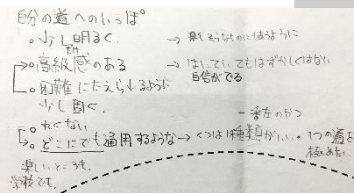 自分の道へのいっぽ。
少し明るく。→ 楽しそうなものにはあうように
だけ
高級感のある → はいていてもはずかしくはない
自信がでる
困難にたえられるように
少し固く。
れてない
どこにでも通用するような→くつは1種類がいい。・1つの道を
極めた。
楽しいところも、
学校でも、